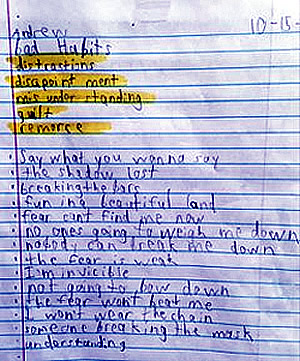 10-15-
Andrew
bad Habits
distractions
disapointment
mis under standing
guilt
remorse
· Say what you wanna say
· the shadow lost
· breaking the bars
· fun in a beautiful land
· fear cant find me now
· no ones going to weigh me down
· nobody can break me down
· the fear is weak
· I'm invicible
· not going to bow down
· the fear won't beat me
· I won't wear the chain
· someone breaking the mask
· understanding